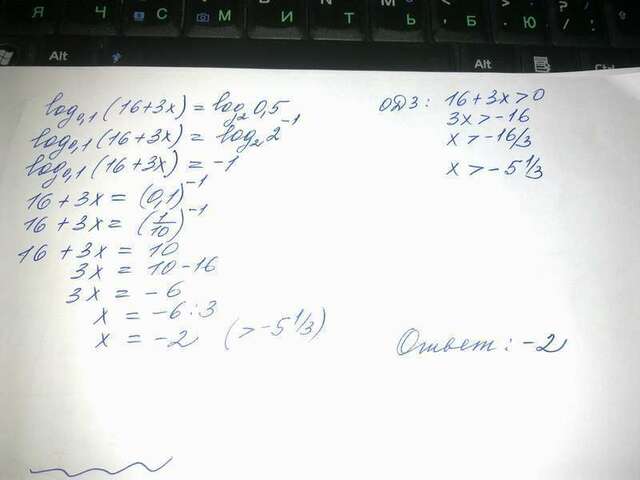 Я Ч С М И Т Ь Б Ю
Alt
Alt
Ctrl
log₀,₁ (16+3x) = log₂ 0,5
log₀,₁ (16+3x) = log₂ 2⁻¹
log₀,₁ (16+3x) = -1
16 + 3x = (0,1)⁻¹
16 + 3x = (1/10)⁻¹
16 + 3x = 10
3x = 10-16
3x = -6
x = -6:3
x = -2 (> -5 1/3)
ОДЗ: 16+3x>0
3x > -16
x > -16/3
x > -5 1/3
Ответ: -2